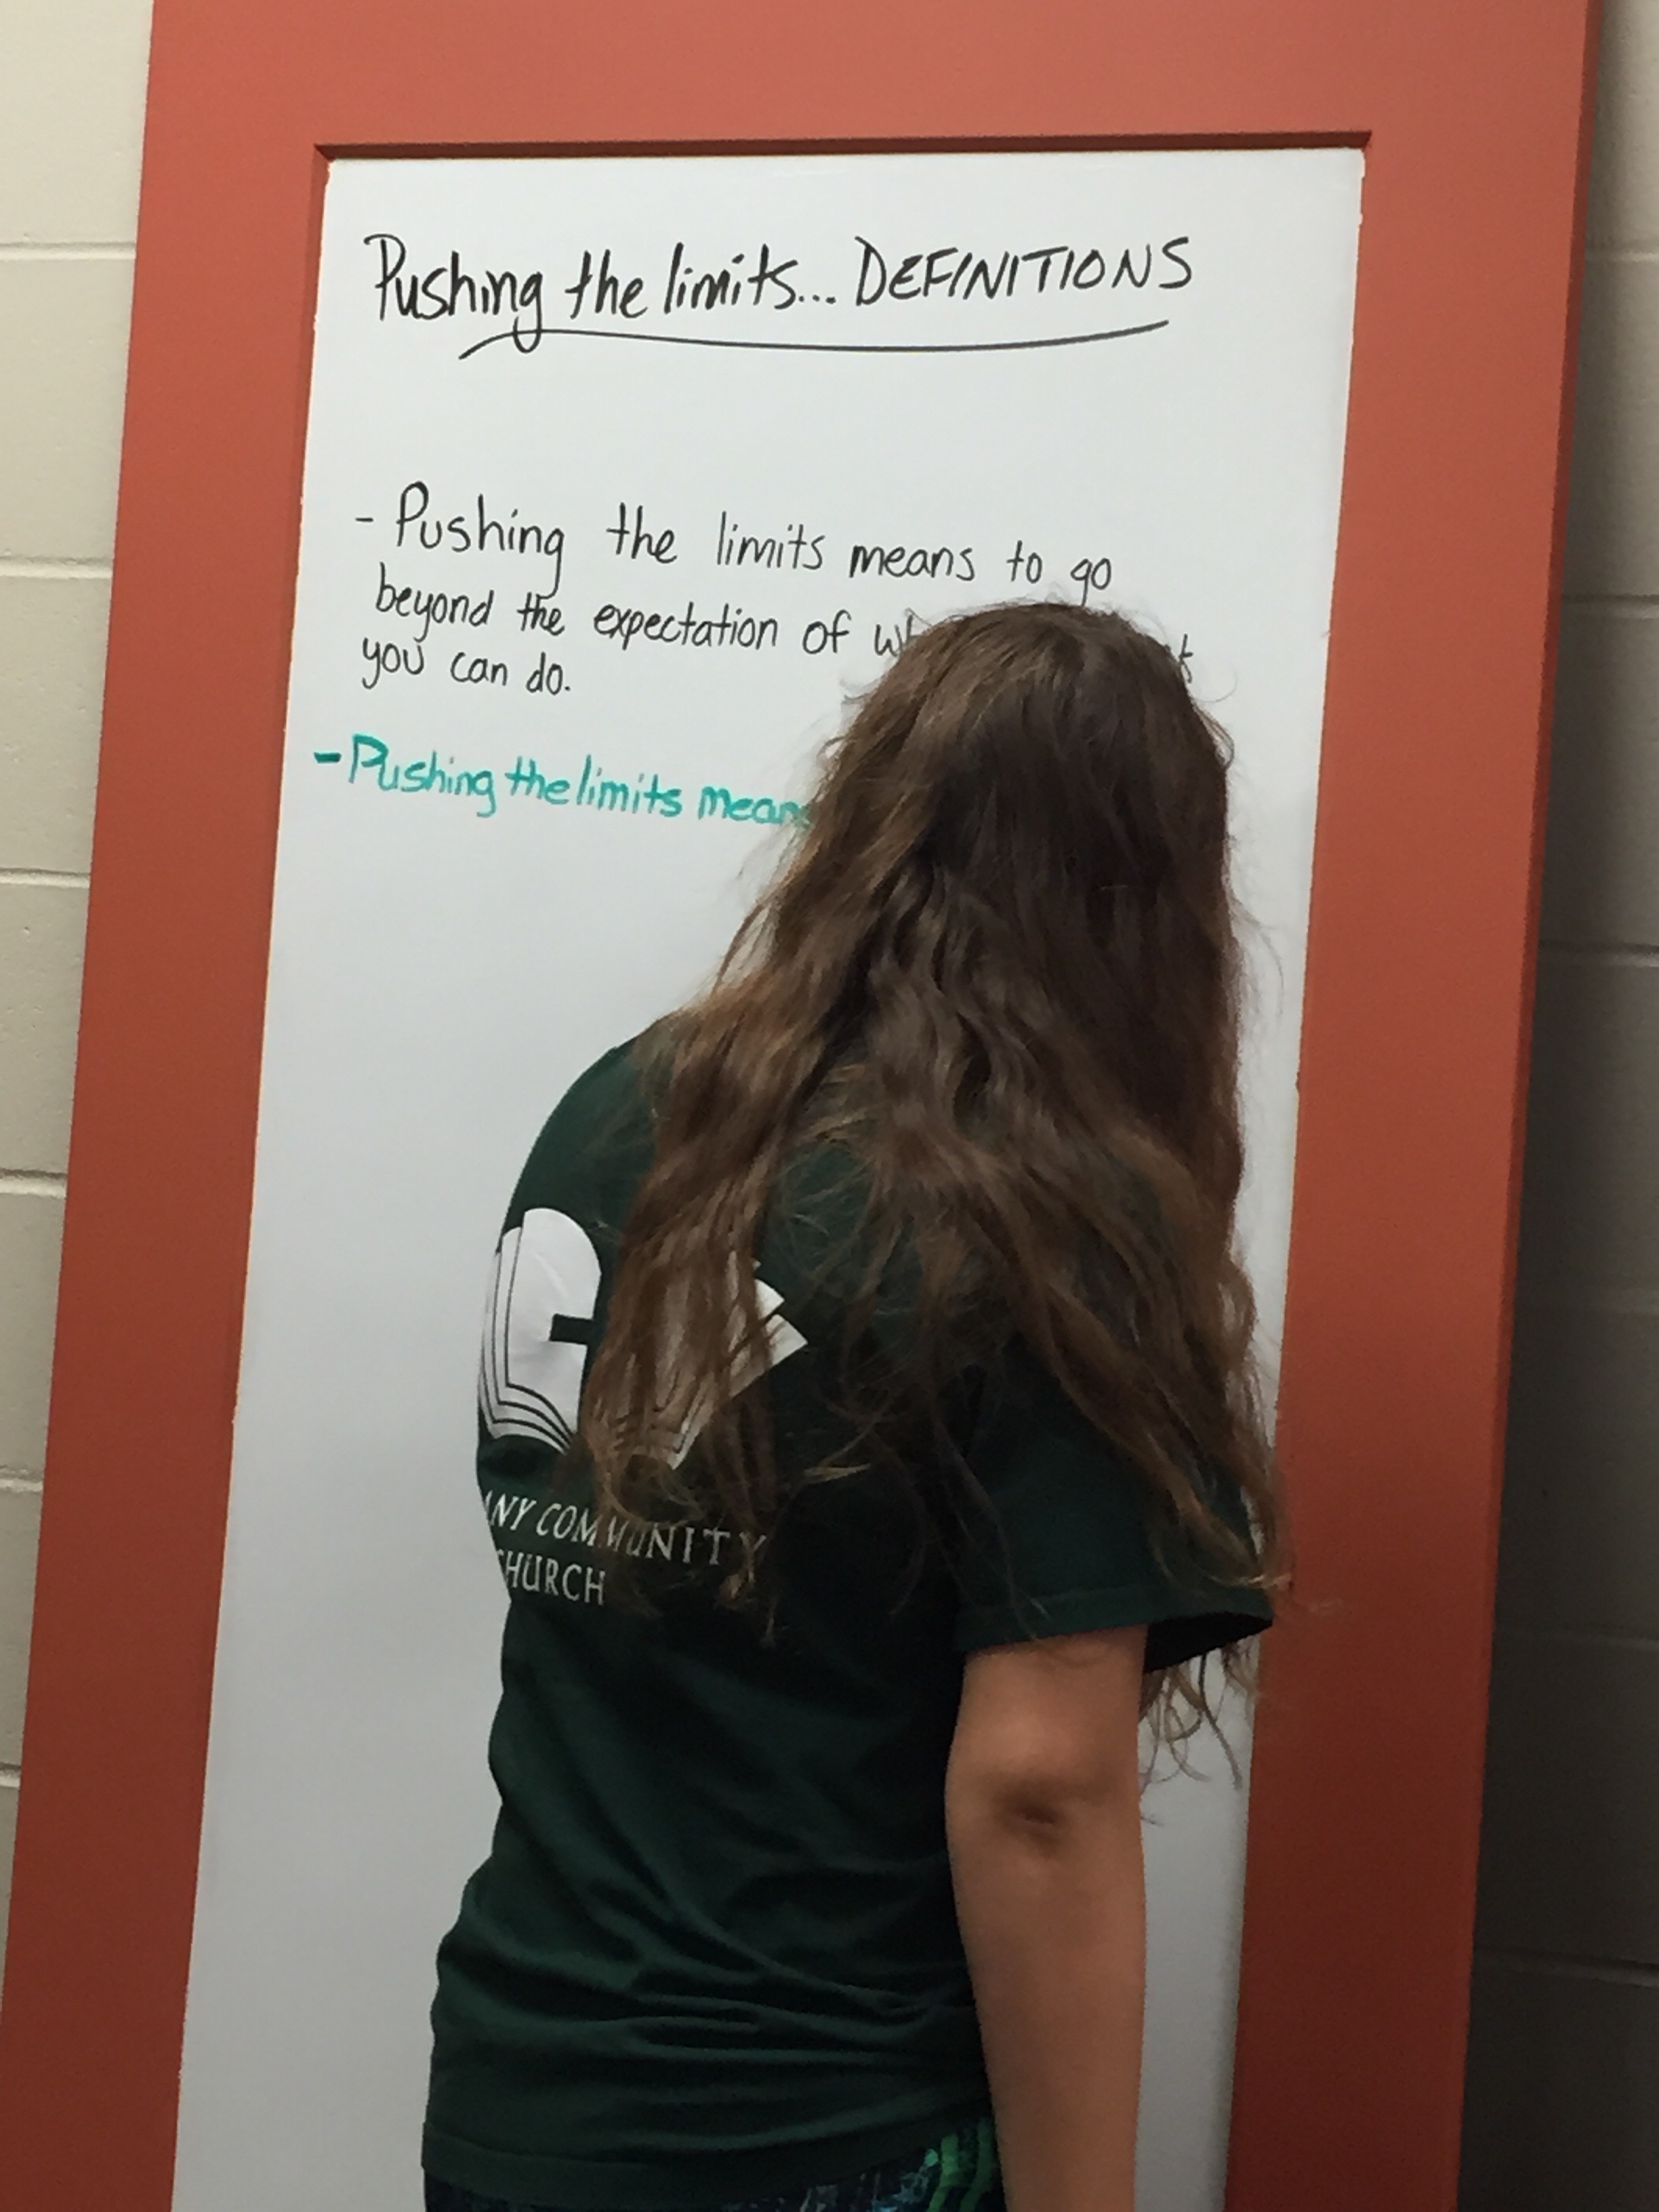 Pushing the limits... DEFINITIONS
- Pushing the limits means to go
beyond the expectation of
you can do.
- Pushing the limits means
COMMUNITY
CHURCH